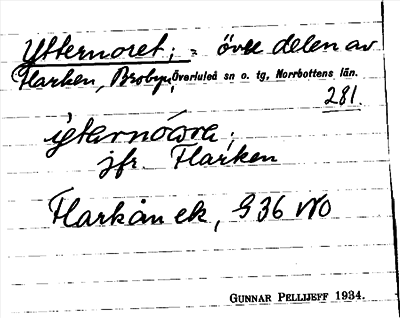 Ytternoret; = övre delen av
Flarken, Brobyn, Överluleå sn o. tg, Norrbottens län.
281.
jfr. Flarken
Flarkån ek, G 36 NO
GUNNAR PELLIJEFF 1934.